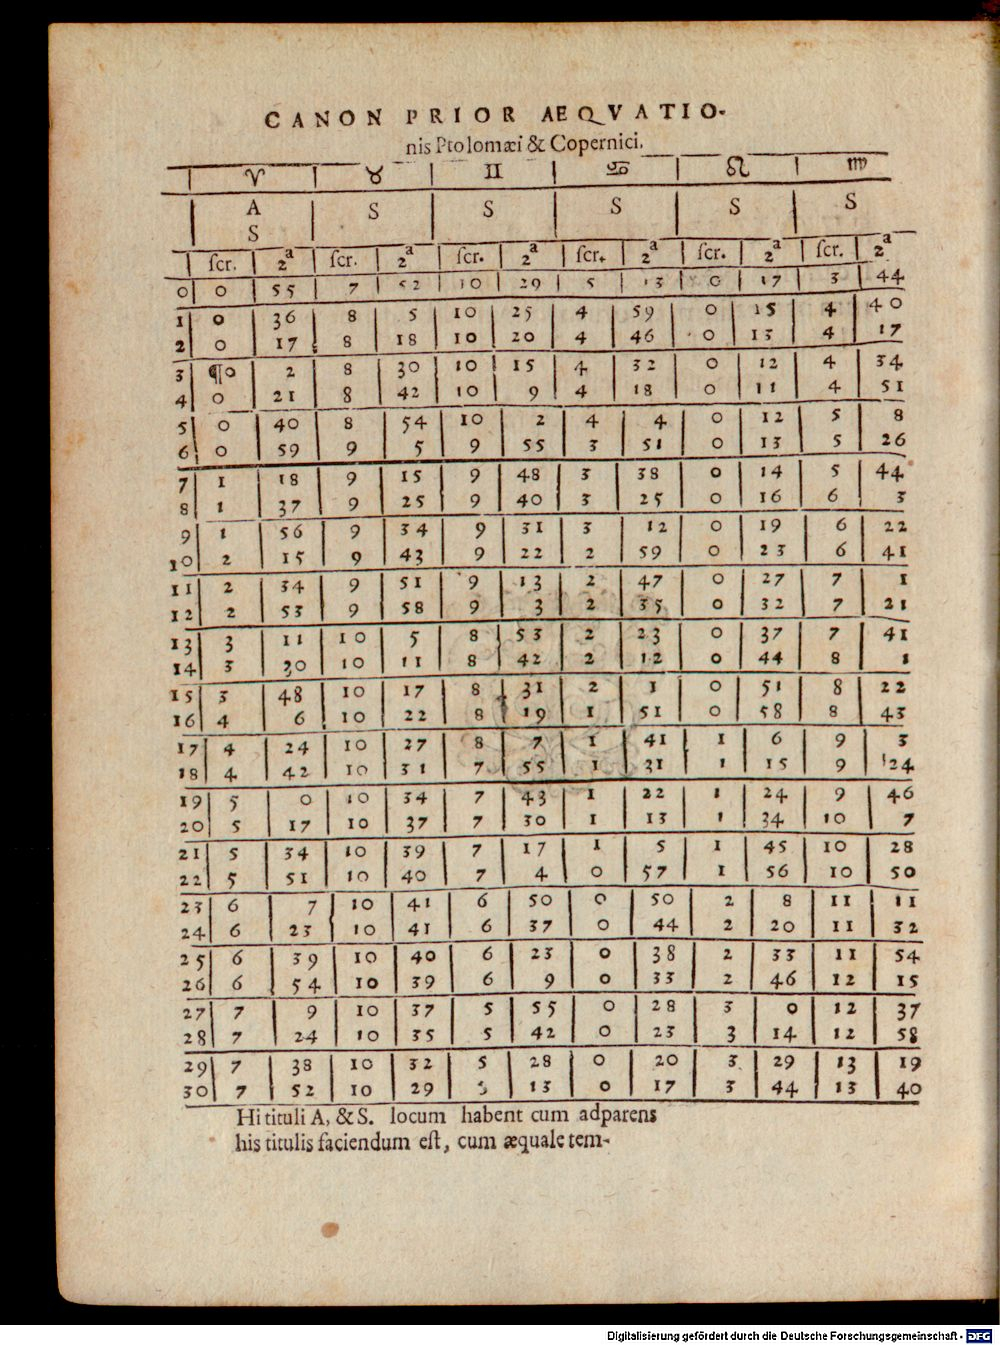 CANON PRIOR AEQVATIO-
nis Ptolomæi & Copernici.
♈ ♉ ♊ ♋ ♌ ♍
A S S S S S
S
ſcr. 2ª ſcr. 2ª ſcr. 2ª ſcr. 2ª ſcr. 2ª ſcr. 2ª
0 0 55 7 52 10 29 5 13 0 17 3 44
1 0 36 8 5 10 25 4 59 0 15 4 40
2 0 17 8 18 10 20 4 46 0 13 4 17
3 ¶0 2 8 30 10 15 4 32 0 12 4 34
4 0 21 8 42 10 9 4 18 0 11 4 51
5 0 40 8 54 10 2 4 4 0 12 5 8
6 0 59 9 5 9 55 3 51 0 13 5 26
7 1 18 9 15 9 48 3 38 0 14 5 44
8 1 37 9 25 9 40 3 25 0 16 6 3
9 1 56 9 34 9 31 3 12 0 19 6 22
10 2 15 9 43 9 22 2 59 0 23 6 41
11 2 34 9 51 9 13 2 47 0 27 7 1
12 2 53 9 58 9 3 2 35 0 32 7 21
13 3 11 10 5 8 53 2 23 0 37 7 41
14 3 30 10 11 8 42 2 12 0 44 8 1
15 3 48 10 17 8 31 2 1 0 51 8 22
16 4 6 10 22 8 19 1 51 0 58 8 43
17 4 24 10 27 8 7 1 41 1 6 9 3
18 4 42 10 31 7 55 1 31 1 15 9 24
19 5 0 10 34 7 43 1 22 1 24 9 46
20 5 17 10 37 7 30 1 13 1 34 10 7
21 5 34 10 39 7 17 1 5 1 45 10 28
22 5 51 10 40 7 4 0 57 1 56 10 50
23 6 7 10 41 6 50 0 50 2 8 11 11
24 6 23 10 41 6 37 0 44 2 20 11 32
25 6 39 10 40 6 23 0 38 2 33 11 54
26 6 54 10 39 6 9 0 33 2 46 12 15
27 7 9 10 37 5 55 0 28 3 0 12 37
28 7 24 10 35 5 42 0 23 3 14 12 58
29 7 38 10 32 5 28 0 20 3 29 13 19
30 7 52 10 29 5 13 0 17 3 44 13 40
Hi tituli A, & S. locum habent cum adparens
his titulis faciendum eſt, cum æquale tem-
Digitalisierung gefördert durch die Deutsche Forschungsgemeinschaft - DFG